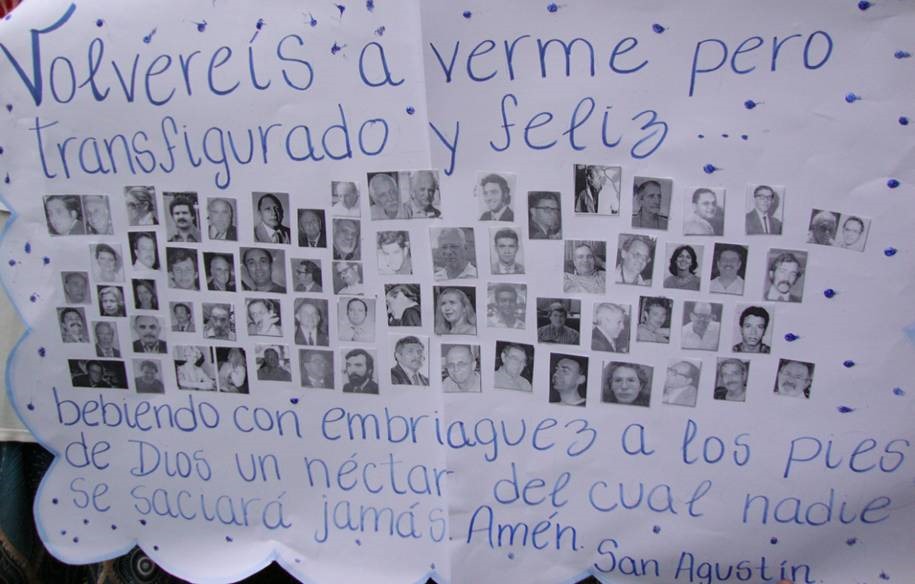 Volvereis a verme pero
transfigurado y feliz ...
bebiendo con embriaguez a los pies
de Dios un néctar del cual nadie
se saciará jamás. Amén.
San Agustín